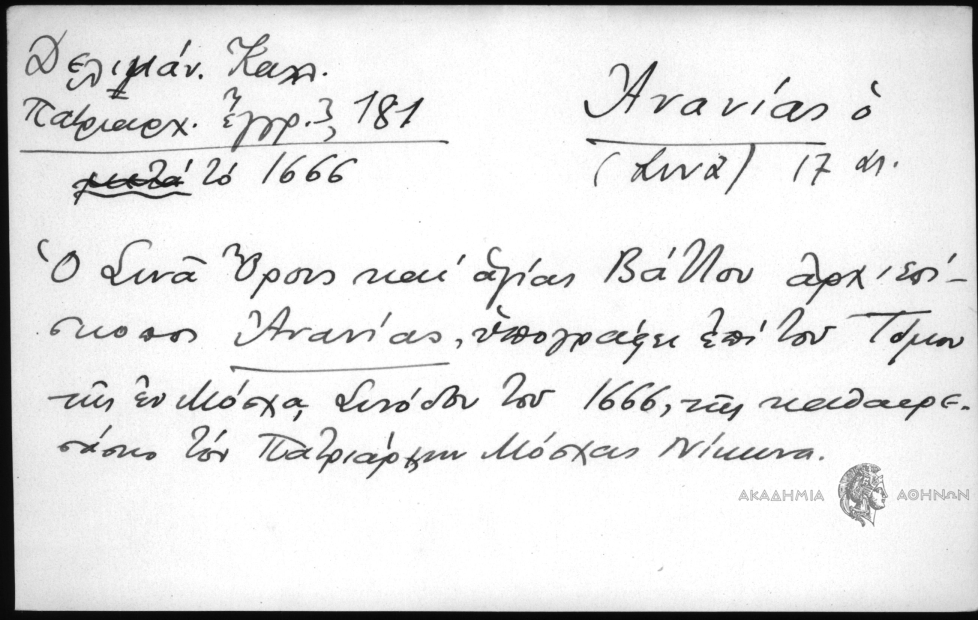 Δελιμάν. Καλ.
Πατριαρχ. ἔγγρ. 3, 181
μετά τό 1666
Ἀνανίας ὁ
(Σινᾶ) 17 αι.
Ὁ Σινᾶ Ὄρους καί ἁγίας Βάτου ἀρχιεπί-
σκοπος Ἀνανίας, ὑπογράφει ἐπί τοῦ Τόμου
τῆς ἐν Μόσχᾳ Συνόδου τοῦ 1666, τῆς καθαιρε-
σάσης τόν Πατριάρχην Μόσχας Νίκωνα.
ΑΚΑΔΗΜΙΑ ΑΘΗΝΩΝ